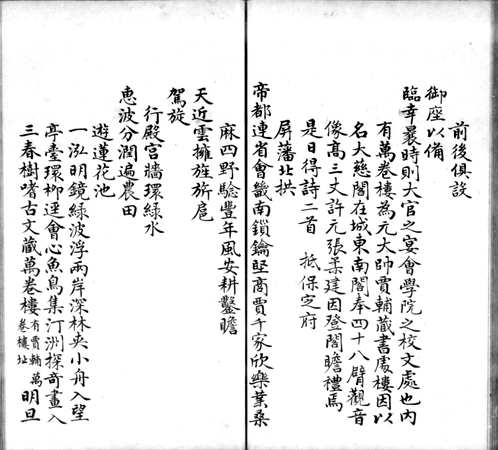 前後俱設
御座以備
臨幸曩時則大官之宴會學院之校文處也內
有萬卷樓為元大帥賈輔藏書處樓因以
名大慈閣在城東南閣奉四十八臂觀音
像高三丈許元張柔建因登閣瞻禮焉
是日得詩二首 抵保定府
屏藩北拱
帝都連省會畿南鎖鑰堅商賈千家欣樂業桑
麻四野騐豐年風安耕鑿瞻
天近雲擁旌旂扈
駕旋
行殿宮牆環綠水
恵波分潤遍農田
遊蓮花池
一泓明鏡綠波浮兩岸深林夾小舟入望
亭臺環柳逕會心魚鳥集汀洲探奇畫入
三春樹嗜古文藏萬卷樓有賈輔萬卷樓址明旦